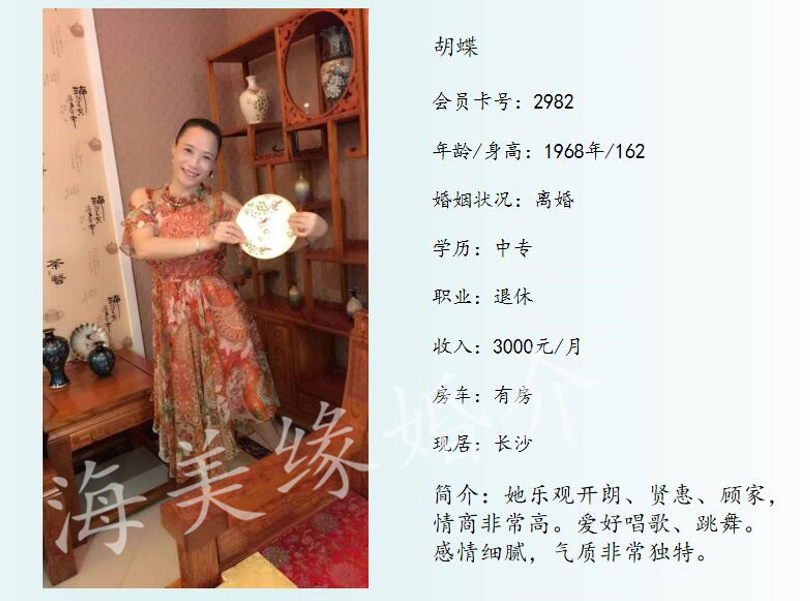 胡蝶
会员卡号：2982
年龄/身高：1968年/162
婚姻状况：离婚
学历：中专
职业：退休
收入：3000元/月
房车：有房
现居：长沙
简介：她乐观开朗、贤惠、顾家，
情商非常高。爱好唱歌、跳舞。
感情细腻，气质非常独特。
海美缘婚介